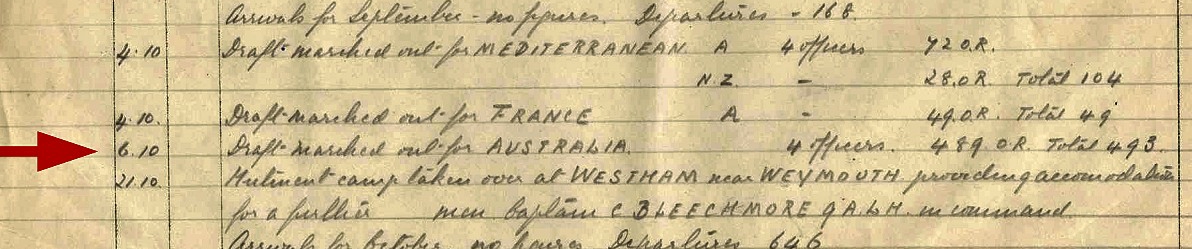 Arrivals for September - no figures. Departures - 168
4.10 Draft marched out for MEDITERRANEAN A 4 officers 72 O.R.
N.Z. - 28.O.R. Total 104
4.10. Draft marched out for FRANCE A - 49.O.R. Total 49
6.10 Draft marched out for AUSTRALIA. 4 officers. 489.O.R. Total 493.
21.10. Hutment camp taken over at WESTHAM near WEYMOUTH providing accomodation
for a further men Captain C BLEECHMORE 9.A.L.H. in command
Arrivals for October no figures Departures 646